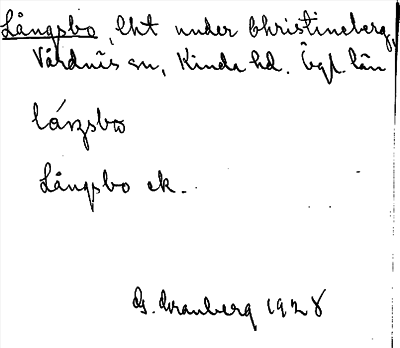 Långsbo, lht under Christineberg,
Vårdnäs sn, Kinda hd. Ögl. län
Långsbo ek.
G. Granberg 1928